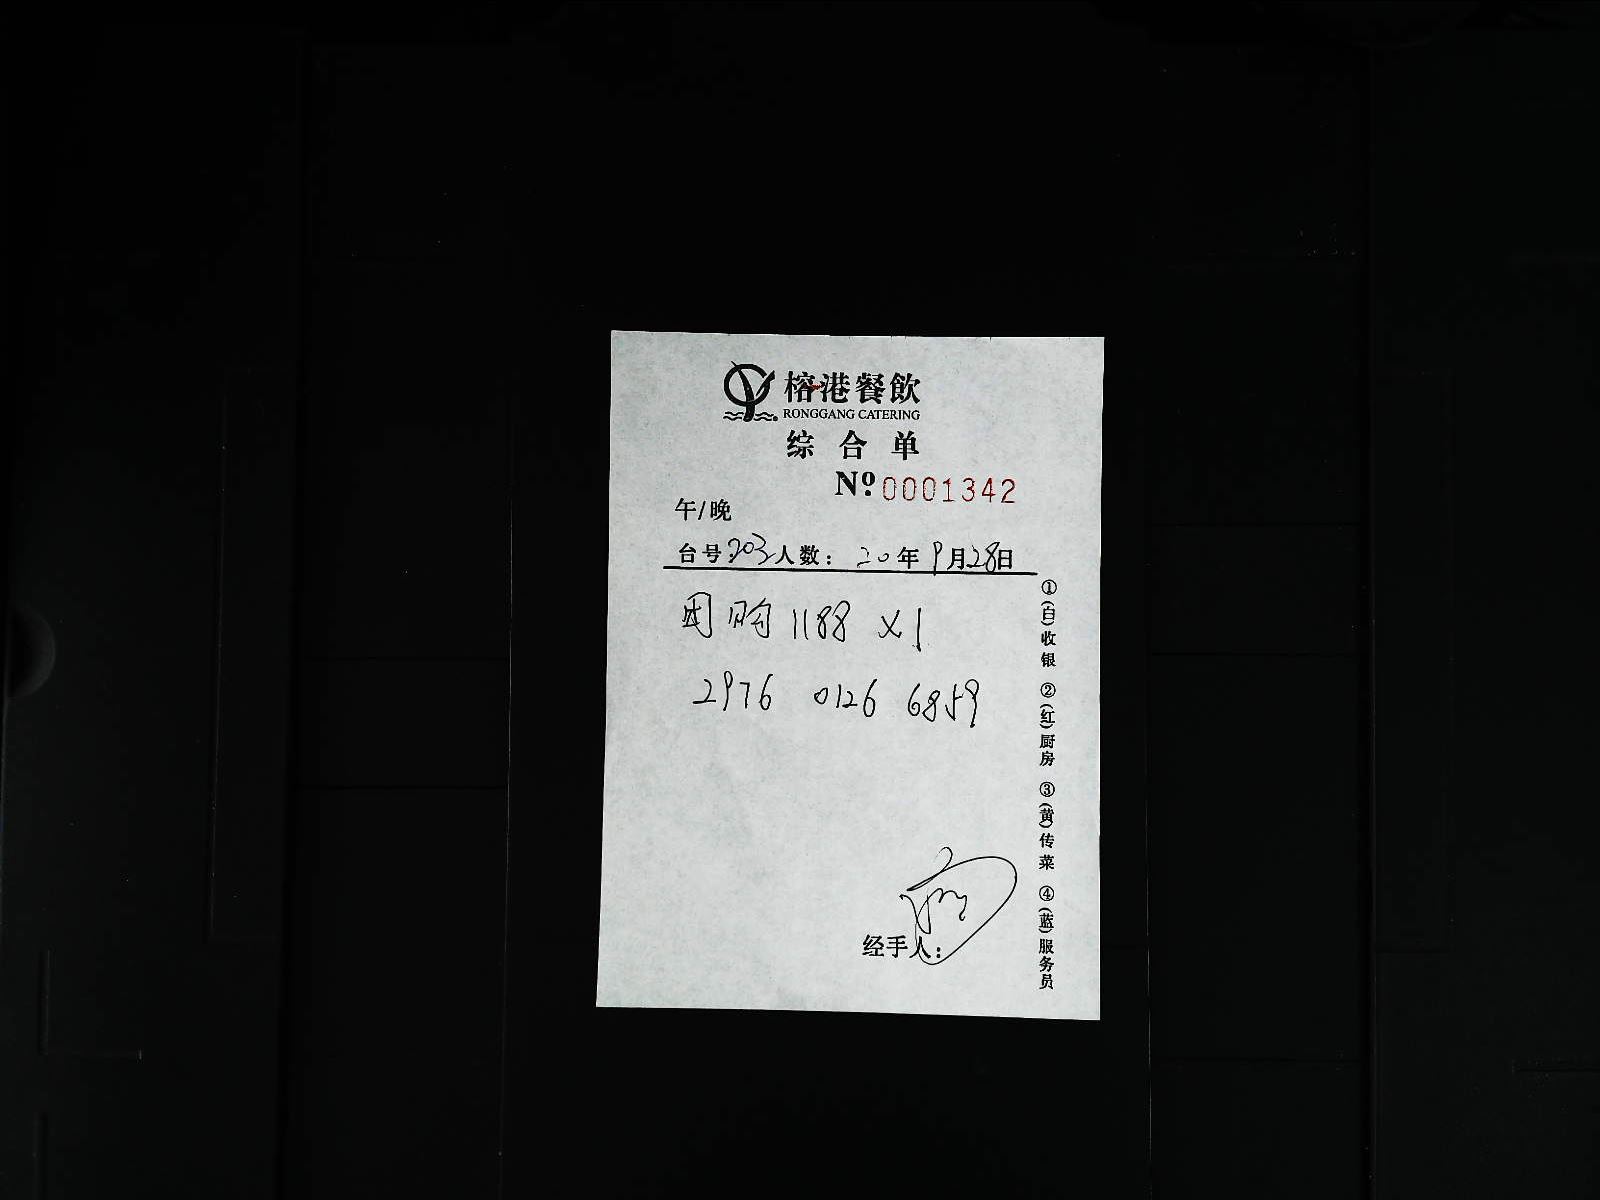 榕港餐飲
RONGGANG CATERING
综合单
Nº 0001342
午/晚
台号:203人数: 20年9月28日
团购1188 x1
2976 0126 6859
经手人:
①(白)收银 ②(红)厨房 ③(黄)传菜 ④(蓝)服务员